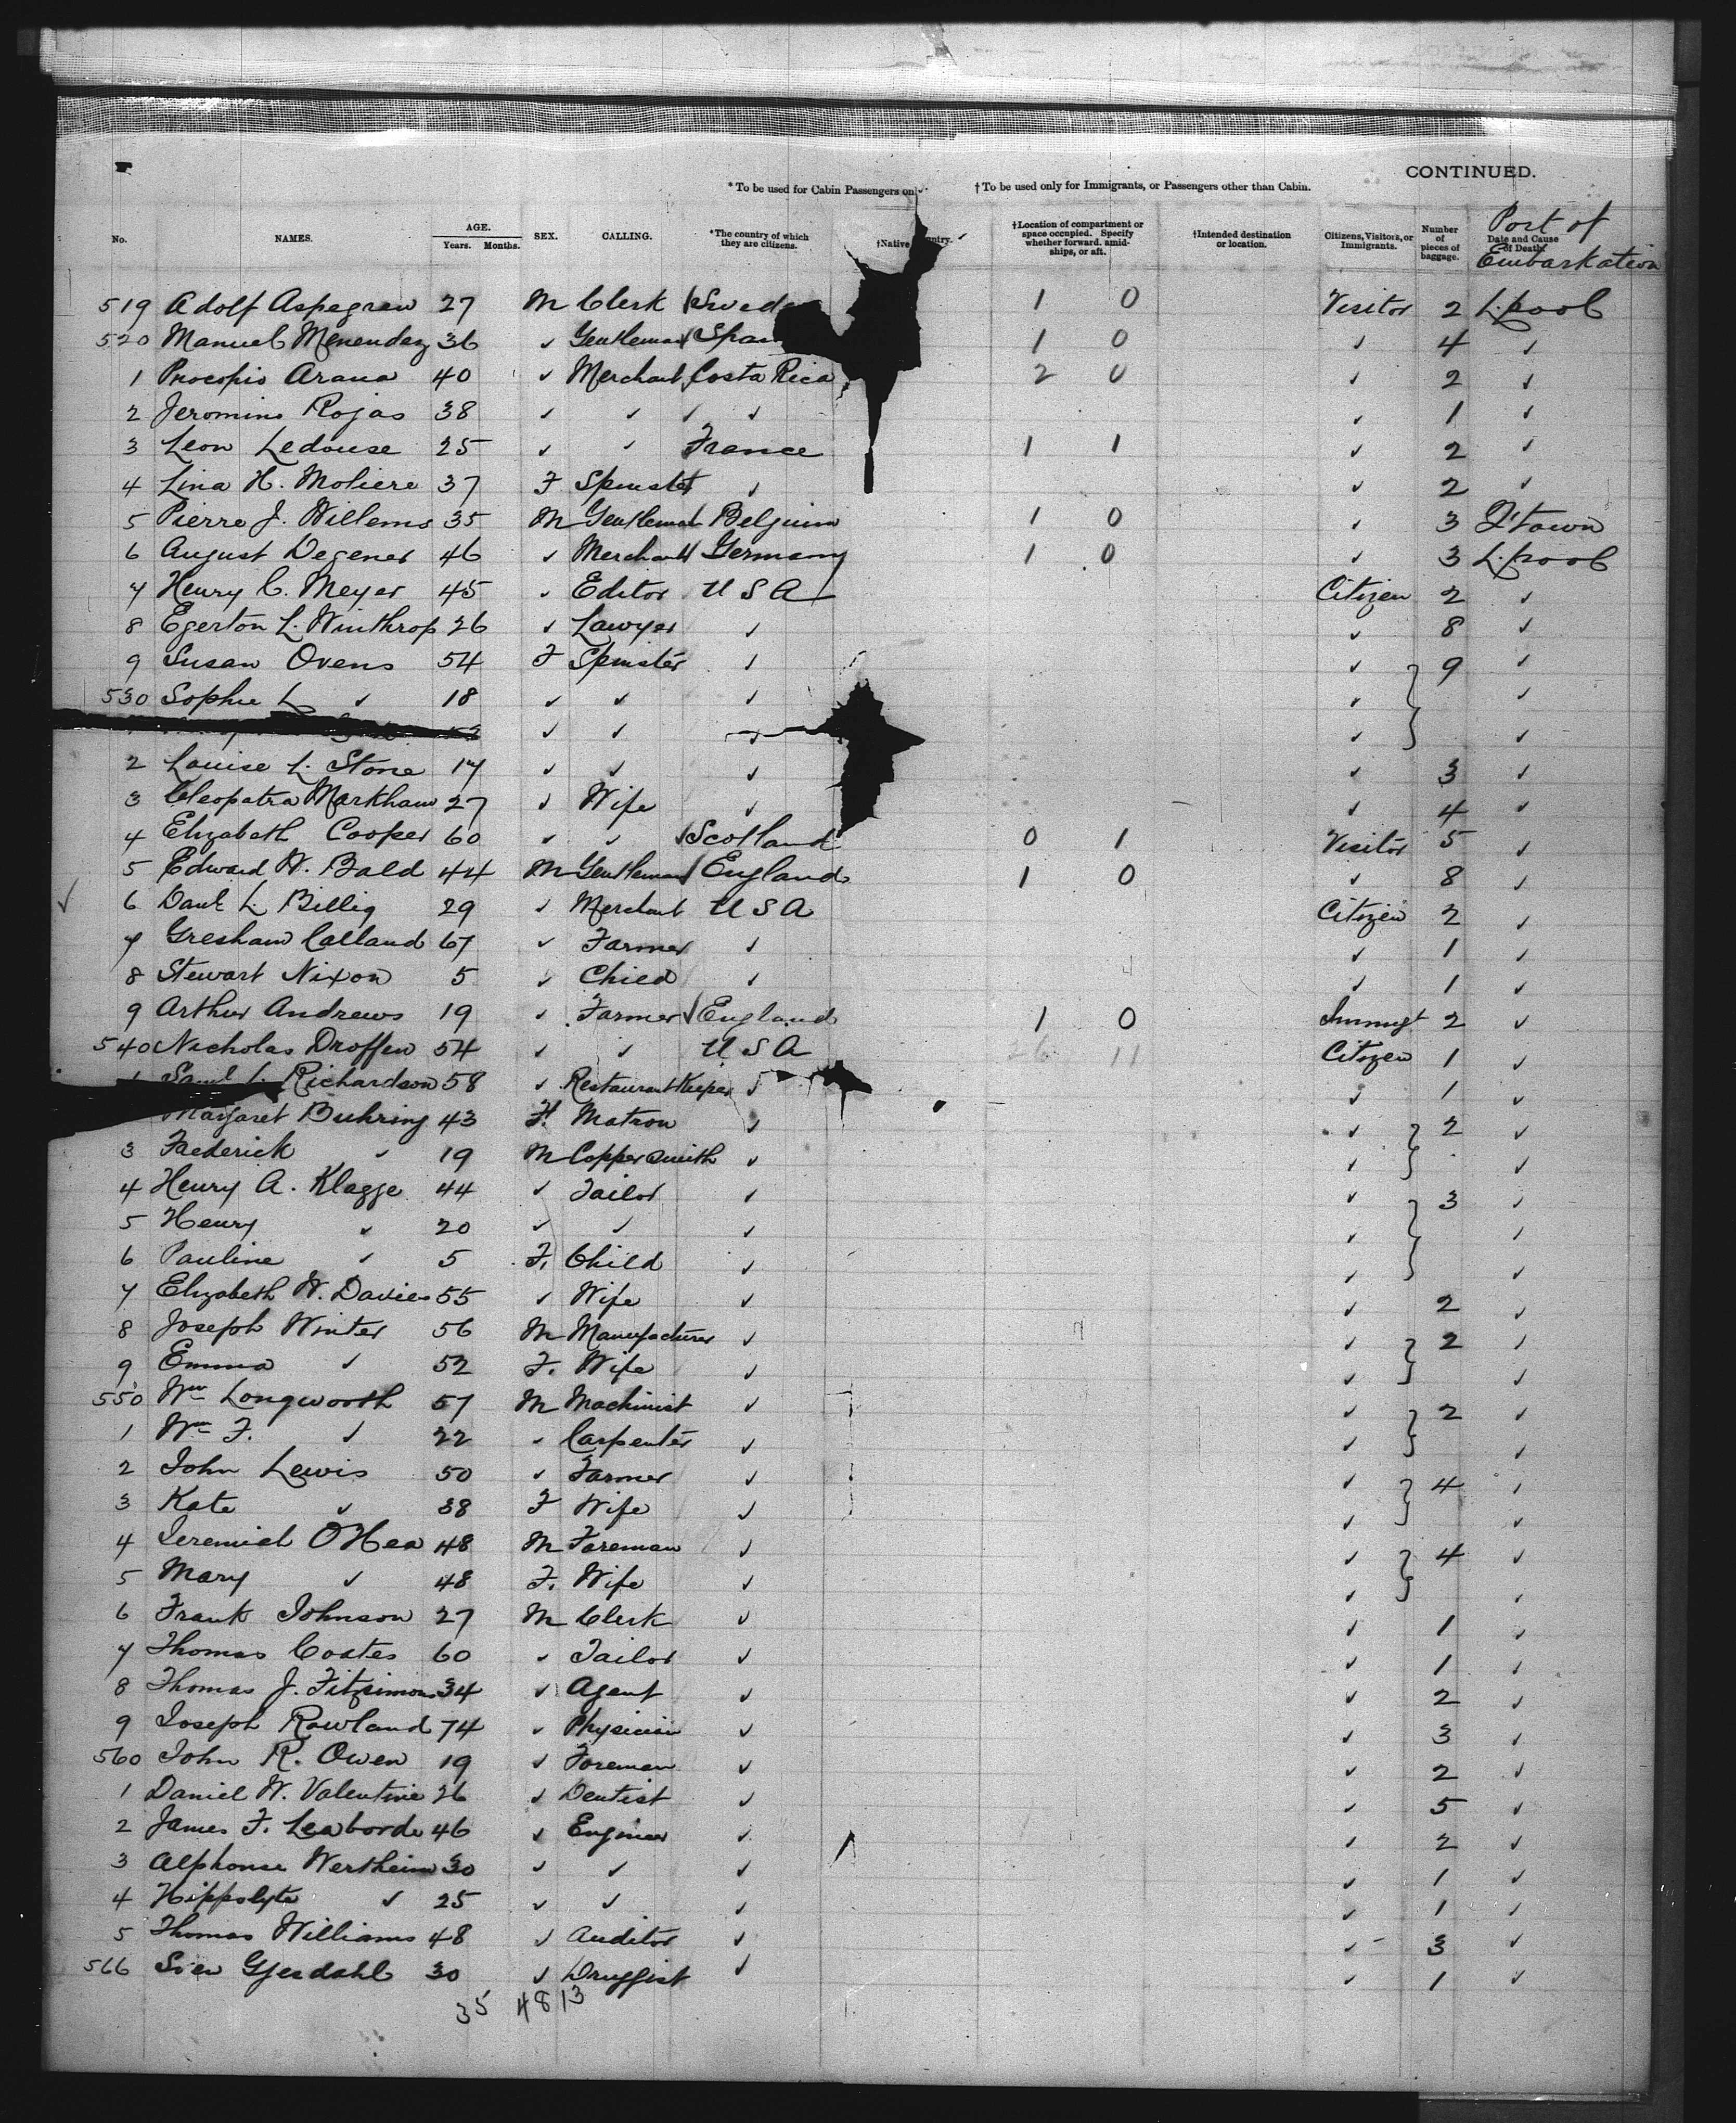 CONTINUED.
* To be used for Cabin Passengers only. † To be used only for Immigrants, or Passengers other than Cabin.
No. NAMES. AGE. Years. Months. SEX. CALLING. *The country of which they are citizens. †Native †Location of compartment or space occupied. Specify whether forward, amidships, or aft. †Intended destination or location. Citizens, Visitors, or Immigrants. Number of pieces of baggage. Date and Cause of Death. Port of Embarkation
519 Adolf Aspegren 27 M Clerk Swede 1 0 Visitor 2 L.pool
520 Manuel Menendez 36 ✓ Gentleman Spai 1 0 ✓ 4 ✓
1 Procopio Arana 40 ✓ Merchant Costa Rica 2 0 ✓ 2 ✓
2 Jeromino Rojas 38 ✓ ✓ ✓ ✓ 1 ✓
3 Leon Ledouse 25 ✓ ✓ France 1 1 ✓ 2 ✓
4 Lina H. Moliere 37 F Spinster ✓ ✓ 2 ✓
5 Pierre J. Willems 35 M Gentleman Belgium 1 0 ✓ 3 Q'town
6 August Degener 46 ✓ Merchant Germany 1 0 ✓ 3 L.pool
7 Henry C. Meyer 45 ✓ Editor U S A Citizen 2 ✓
8 Egerton L. Winthrop 26 ✓ Lawyer ✓ ✓ 8 ✓
9 Susan Ovens 54 F Spinster ✓ ✓ 9 ✓
530 Sophie L ✓ 18 ✓ ✓ ✓ ✓ ✓
✓ ✓ ✓ ✓ ✓
2 Louise L. Stone 17 ✓ ✓ ✓ ✓ 3 ✓
3 Cleopatra Markham 27 ✓ Wife ✓ ✓ 4 ✓
4 Elizabeth Cooper 60 ✓ ✓ Scotland 0 1 Visitor 5 ✓
5 Edward W. Bald 44 M Gentleman England 1 0 ✓ 8 ✓
6 Danl. L. Billig 29 ✓ Merchant U S A Citizen 2 ✓
7 Gresham Calland 67 ✓ Farmer ✓ ✓ 1 ✓
8 Stewart Nixon 5 ✓ Child ✓ ✓ 1 ✓
9 Arthur Andrews 19 ✓ Farmer England 1 0 Immigt 2 ✓
540 Nicholas Droffen 54 ✓ ✓ U S A 26 11 Citizen 1 ✓
1 Saml. L. Richardson 58 ✓ Restaurant Keeper ✓ ✓ 1 ✓
Margaret Buhring 43 F. Matron ✓ ✓ 2 ✓
3 Frederick ✓ 19 M Coppersmith ✓ ✓ ✓
4 Henry A. Klagge 44 ✓ Tailor ✓ ✓ 3 ✓
5 Henry ✓ 20 ✓ ✓ ✓ ✓ ✓
6 Pauline ✓ 5 F. Child ✓ ✓ ✓
7 Elizabeth W. Davies 55 ✓ Wife ✓ ✓ 2 ✓
8 Joseph Winter 56 M Manufacturer ✓ ✓ 2 ✓
9 Emma ✓ 52 F. Wife ✓ ✓ ✓
550 Wm Longworth 57 M Machinist ✓ ✓ 2 ✓
1 Wm F. ✓ 22 ✓ Carpenter ✓ ✓ ✓
2 John Lewis 50 ✓ Farmer ✓ ✓ 4 ✓
3 Kate ✓ 38 F Wife ✓ ✓ ✓
4 Jeremiah O'Hea 48 M Foreman ✓ ✓ 4 ✓
5 Mary ✓ 48 F. Wife ✓ ✓ ✓
6 Frank Johnson 27 M Clerk ✓ ✓ 1 ✓
7 Thomas Coates 60 ✓ Tailor ✓ ✓ 1 ✓
8 Thomas J. Fitzsimons 34 ✓ Agent ✓ ✓ 2 ✓
9 Joseph Rowland 74 ✓ Physician ✓ ✓ 3 ✓
560 John R. Owen 19 ✓ Foreman ✓ ✓ 2 ✓
1 Daniel W. Valentine 26 ✓ Dentist ✓ ✓ 5 ✓
2 James F. Leaborde 46 ✓ Engineer ✓ ✓ 2 ✓
3 Alphonse Wertheim 30 ✓ ✓ ✓ ✓ 1 ✓
4 Hippolyte ✓ 25 ✓ ✓ ✓ ✓ 1 ✓
5 Thomas Williams 48 ✓ Auditor ✓ ✓ 3 ✓
566 Sven Gjesdahl 30 ✓ Druggist ✓ ✓ 1 ✓
35 48 13